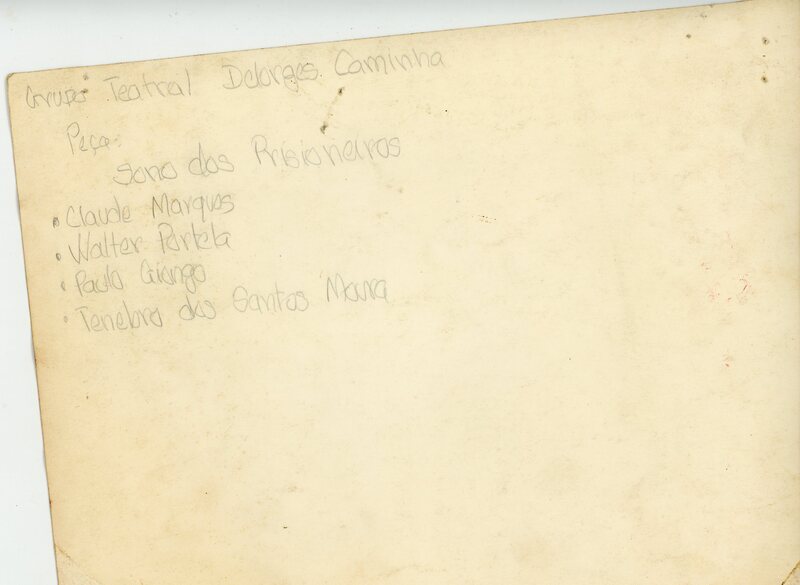 Grupo Teatral Delorges Caminha
Peça:
Sono dos Prisioneiros
• Claude Marques
• Walter Portela
• Paulo Giongo
• Tenebro dos Santos Moura